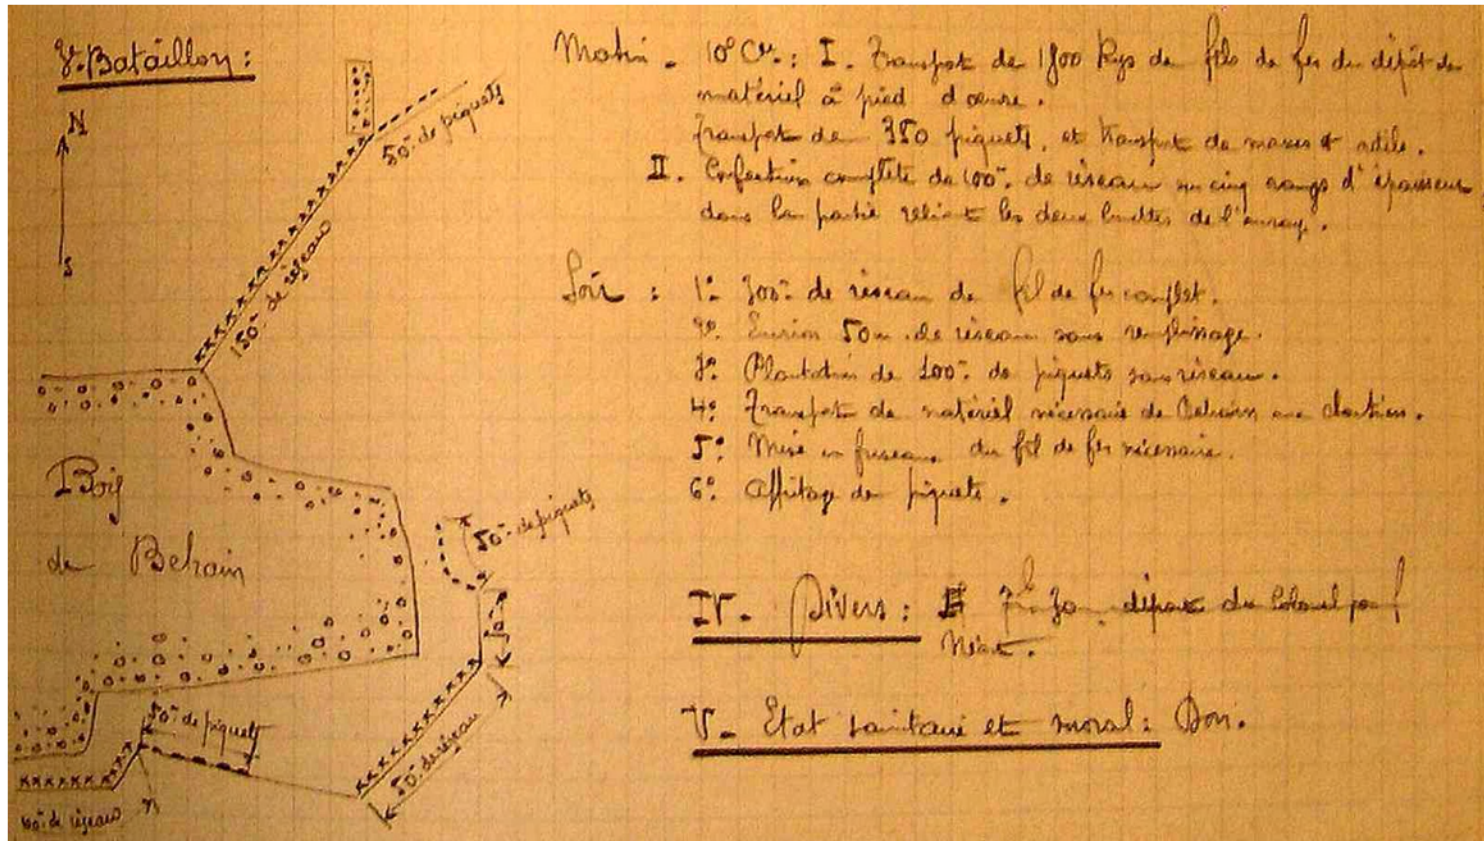 Bataillon :
N
S
50m de piquets
150m de réseau
Bois
de Behain
50m de piquets
50m de piquets
50m de réseau
de réseau
Matin - 10e Cie : I - Transport de kgs de fils de fer du dépôt de
matériel à pied d'œuvre.
Transport de 350 piquets, et transport de masses et outils.
II. Confection complète de 100m de réseau sur cinq rangs d'épaisseur
dans la partie reliant les deux de
Soir : 1° de réseau de fil de fer complet.
2° Environ 50m de réseau sans remplissage.
3° Plantation de 100m de piquets sans réseau.
4° Transport de matériel nécessaire de Behain aux chantiers.
5° Mise en fuseaux du fil de fer nécessaire.
6° Affutage de piquets.
IV - Divers : départ du Colonel pour
V - Etat sanitaire et moral : Bon.